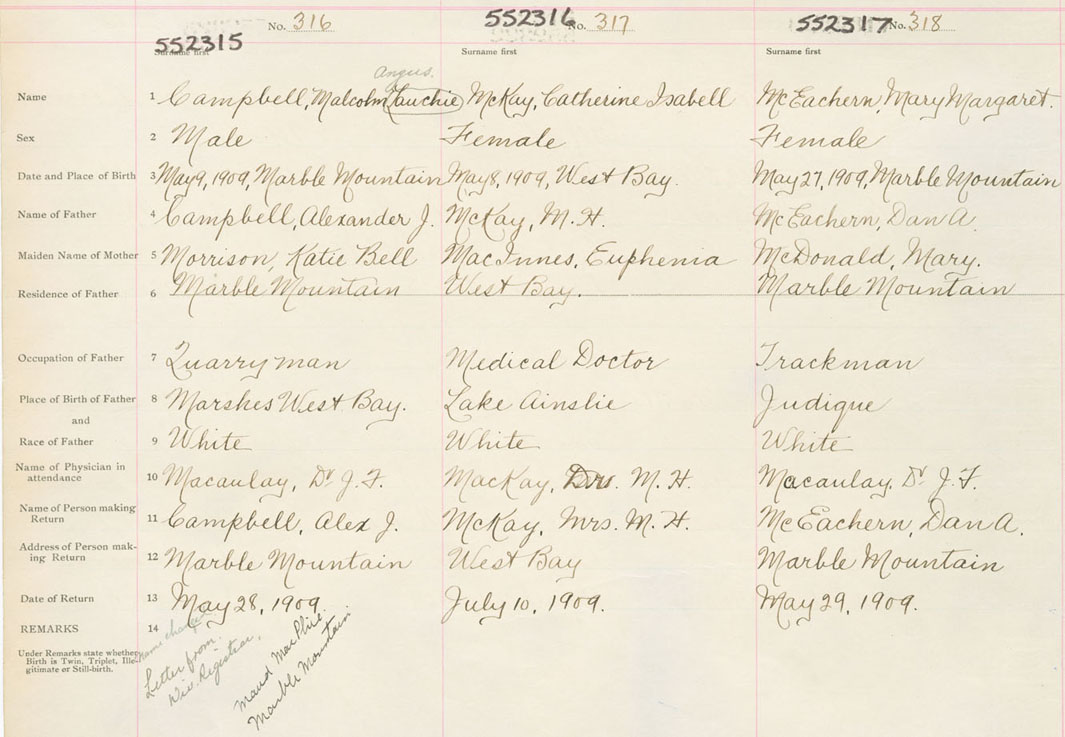 No. 316 552316 No. 317 552317 No. 318
552315
Surname first Surname first Surname first
Angus.
Name 1 Campbell, Malcolm Lauchie McKay, Catherine Isabell McEachern, Mary Margaret.
Sex 2 Male Female Female
Date and Place of Birth 3 May 9, 1909, Marble Mountain May 8, 1909, West Bay. May 27, 1909, Marble Mountain
Name of Father 4 Campbell, Alexander J. McKay, M. H. McEachern, Dan A.
Maiden Name of Mother 5 Morrison, Katie Bell MacInnes, Euphemia McDonald, Mary.
Residence of Father 6 Marble Mountain West Bay. Marble Mountain
Occupation of Father 7 Quarryman Medical Doctor Trackman
Place of Birth of Father 8 Marshes West Bay. Lake Ainslie Judique
and
Race of Father 9 White White White
Name of Physician in
attendance 10 Macaulay, Dr J. F. MacKay, M. H. Macaulay, Dr J. F.
Name of Person making
Return 11 Campbell, Alex J. McKay, Mrs. M. H. McEachern, Dan A.
Address of Person mak-
ing Return 12 Marble Mountain West Bay Marble Mountain
Date of Return 13 May 28, 1909. July 10, 1909. May 29, 1909.
REMARKS 14
Under Remarks state whether
Birth is Twin, Triplet, Ille-
gitimate or Still-birth.
name change
Letter from
Div. Registrar,
Maud MacPhie
Marble Mountain